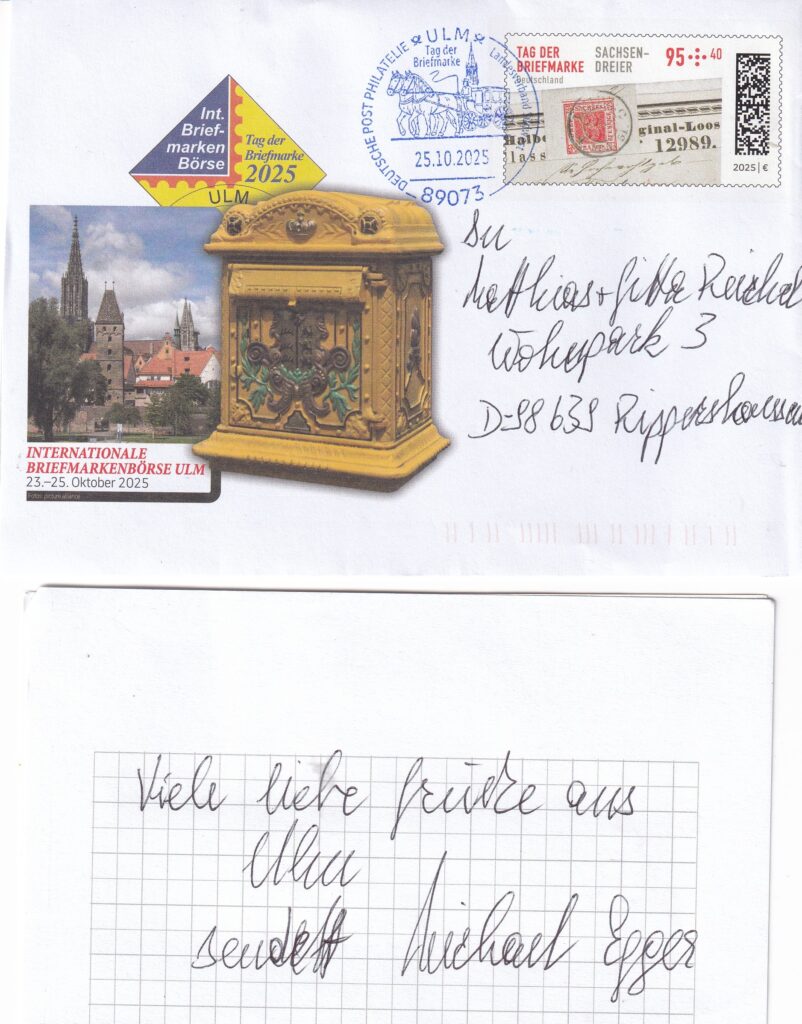 Int.
Brief-
marken
Börse
Tag der
Briefmarke
2025
ULM
DEUTSCHE POST PHILATELIE
ULM
Tag der
Briefmarke
Landesverband
25.10.2025
89073
TAG DER
BRIEFMARKE
Deutschland
SACHSEN-
DREIER
95+40
Halbe
lass
ginal-Loos
12989.
2025 | €
An
Matthias + Gitta Reichel
Wohnpark 3
D-98639 Rippershausen
INTERNATIONALE
BRIEFMARKENBÖRSE ULM
23.–25. Oktober 2025
Foto: picture alliance
Viele liebe Grüße aus
Ulm
sendet Michael Egger